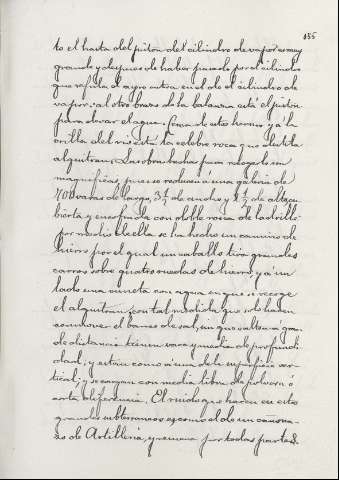 135
to el hasta del piton del cilindro de vapor es muy
grande y despues de haber pasado por el cilindro
que refula el ayre entra en el de el cilindro de
vapor: al otro brazo de la balanza está el piston
para elevar el agua. Cerca de este horno y á la
orilla del rio está la célebre roca que destila
alquitran. Las obras hechas para recogerlo son
magnificas, pues se reducen á una galeria de
700 varas de largo, 3½ de ancho y 2½ de alto, cu
bierta y enroscada con doble rosca de ladrillo
por medio de ella se ha hecho un camino de
hierro por el qual un caballo tira grandes
carros sobre quatro ruedas de hierro, y á un
lado una cuneta con agua en que se recoge
el alquitran;
el banco de sal, en que saltan á
de distancia tienen vara y media de profundi
dad; y estan como á una de la superficie ver-
tical; y se cargan con media libra de polvora ó
corta diferencia. El ruido que hacen en estos
grandes subterraneos es como el de un cañona-
zo de Artilleria, y resuena por todas partes.